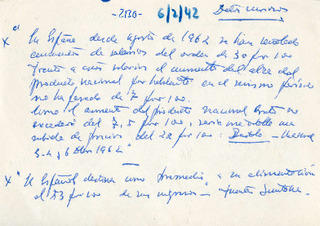 -2130- 6/2/42 Datos
x "En España desde agosto de 1962 se han
aumentos de salarios del orden de 30 por 100
frente a estos salarios el aumento del alza del
producto nacional por habitante en el mismo período
no ha pasado de 7 por 100.
Como el aumento del producto nacional bruto no
excederá del 7,5 por 100, sería inevitable una
subida de precios del 22 por 100: Pueblo - Madrid
3-4, 6 Obre 1962"
x "El Español destina como promedio a su alimentación
el 53 por 100 de sus ingresos -